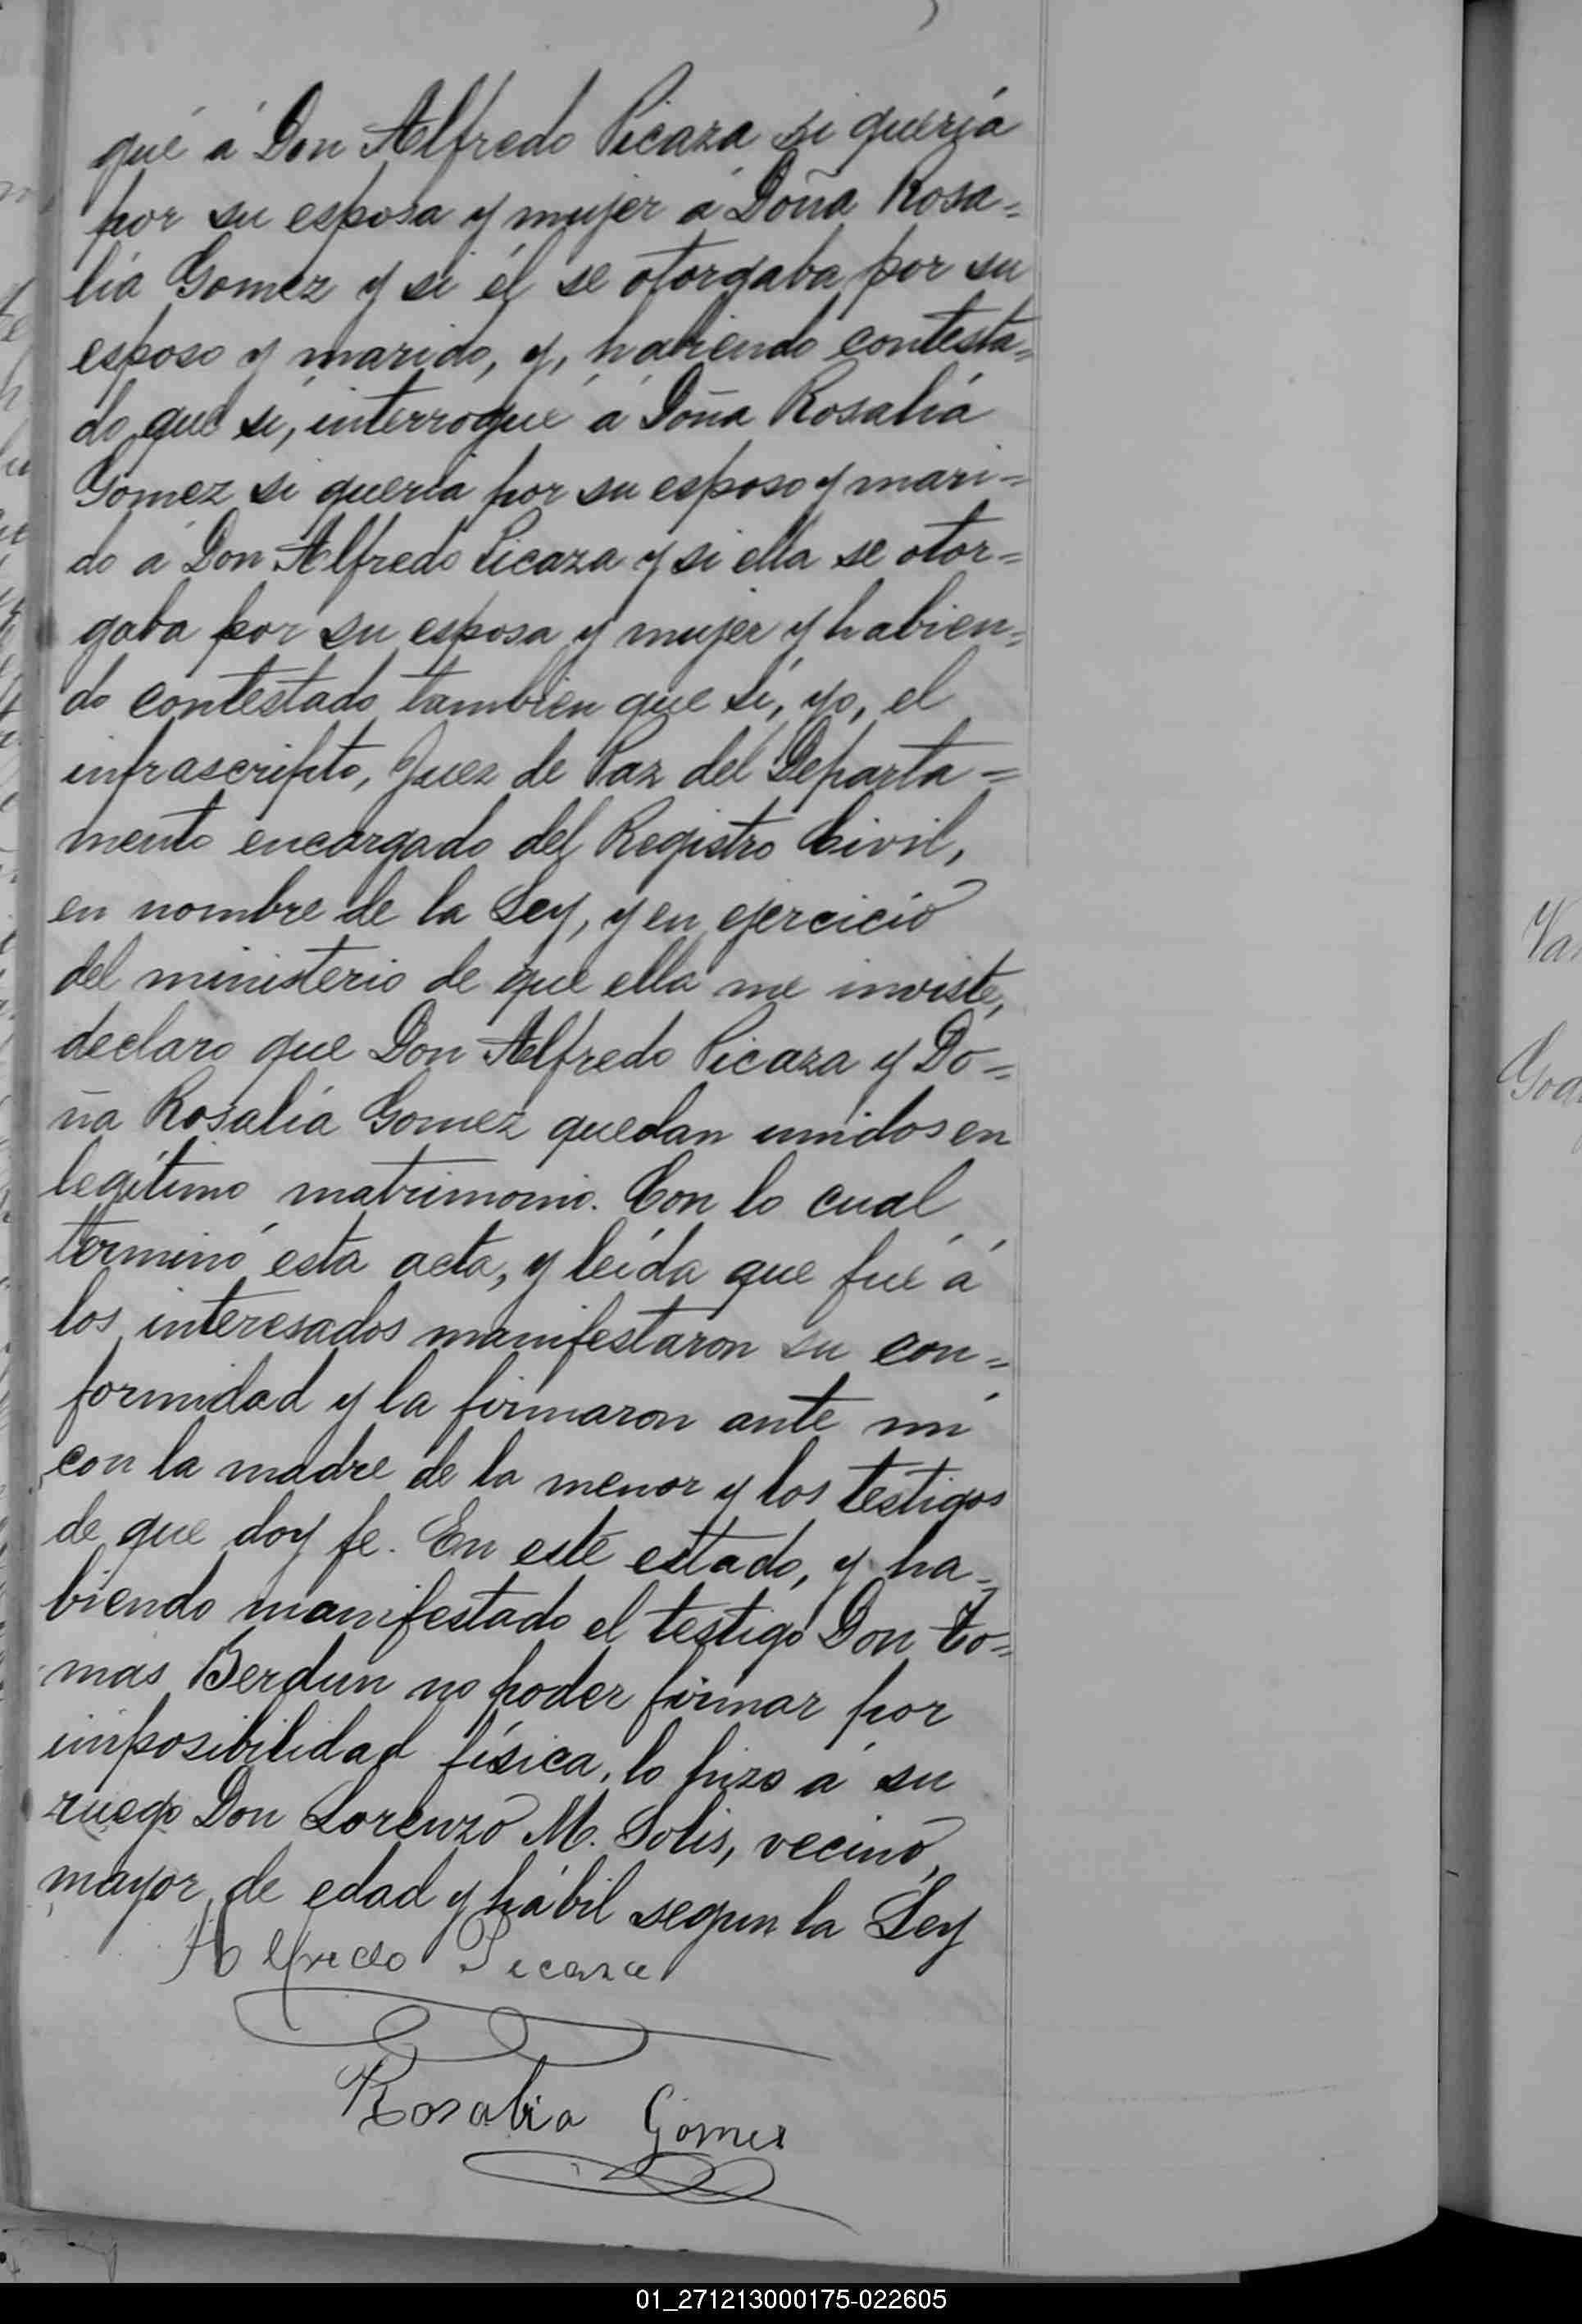 qué á Don Alfredo Picaza si quería
por su esposa y mujer á Doña Rosa=
lía Gomez y si él se otorgaba por su
esposo y marido, y, habiendo contesta=
do que si, interrogué á Doña Rosalía
Gomez si quería por su esposo y mari=
do á Don Alfredo Picaza y si ella se otor=
gaba por su esposa y mujer y habien=
do contestado tambien que si, yo, el
infrascripto, Juez de Paz del Departa=
mento encargado del Registro Civil,
en nombre de la Ley, y en ejercicio
del ministerio de que ella me inviste,
declaro que Don Alfredo Picaza y Do=
ña Rosalía Gomez quedan unidos en
legítimo matrimonio. Con lo cual
terminó esta acta, y leída que fué á
los interesados manifestaron su con=
formidad y la firmaron ante mí
con la madre de la menor y los testigos
de que doy fe. En este estado, y ha=
biendo manifestado el testigo Don To=
mas Berdun no poder firmar por
imposibilidad física, lo hizo á su
ruego Don Lorenzo M. Solis, vecino,
mayor de edad y hábil segun la Ley
Alfredo Picaza
Rosalia Gomez
01_271213000175-022605